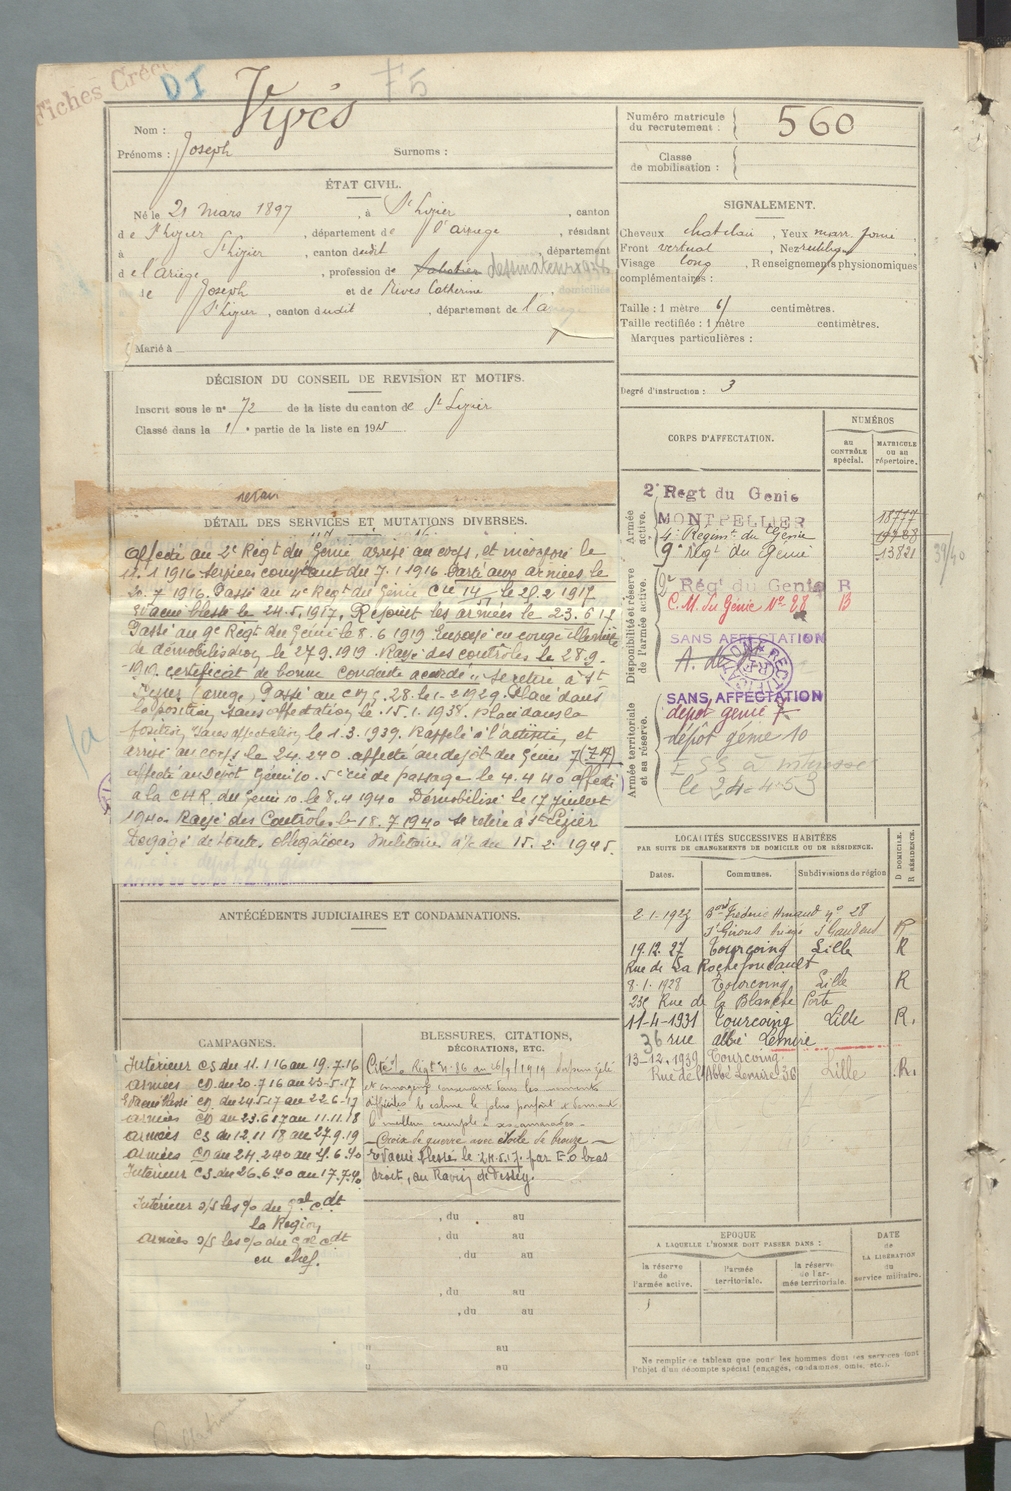 Fiches
DI
F5
Nom : Vivès
Prénoms : Joseph Surnoms :
Numéro matricule du recrutement : 560
Classe de mobilisation :
ÉTAT CIVIL.
Né le 21 mars 1897, à St Lizier, canton
de St Lizier, département de l'ariège, résidant
à St Lizier, canton dudit département
de l'ariège, profession de dessinateur
de Joseph et de Rives Catherine, domiciliés
St Lizier, canton dudit, département de l'ariège
Marié à
SIGNALEMENT.
Cheveux chatclair, Yeux marr. foncé,
Front vertical, Nez rectiligne
Visage long, Renseignements physionomiques
complémentaires :
Taille : 1 mètre 61 centimètres.
Taille rectifiée : 1 mètre centimètres.
Marques particulières :
Degré d'instruction : 3
DÉCISION DU CONSEIL DE REVISION ET MOTIFS.
Inscrit sous le n° 72 de la liste du canton de St Lizier
Classé dans la 1e partie de la liste en 1915
DÉTAIL DES SERVICES ET MUTATIONS DIVERSES.
affecté au 2e Régt du Génie arrivé au corps, et incorporé le
11.1.1916 services comptant du 7.1.1916 Parti aux armées le
20.7.1916. Passé au 4e Régt du Génie Cie 14/ le 25.2.1917
Evacué blessé le 24.5.1917, Rejoint les armées le 23.6.17
Passé au 9e Régt du Génie le 8.6.1919 Envoyé en congé illimité
de démobilisation le 27.9.1919. Rayé des contrôles le 28.9.
1919. Certificat de bonne conduite accordé. Se retire à St
Lizier (ariège). Passé au CMG. 28 le 1.2.1929. Placé dans
la position sans affectation le 15.1.1938. Placé dans la
position sans affectation le 1.3.1939. Rappelé à l'activité, et
arrivé au corps le 24.2.40 affecté au dépôt du Génie 7
affecté au Dépôt Génie 10. 5e Cie de passage le 4.4.40 affecté
à la CHR, du Génie 10. le 8.4.1940 Démobilisé le 17 juillet
1940. Rayé des Contrôles le 18.7.1940 se retire à St Lizier
Dégagé de toutes obligations militaires a/c du 15.2.1945.
CORPS D'AFFECTATION.
NUMÉROS
au CONTRÔLE spécial.
MATRICULE ou au répertoire.
Armée active.
2e Régt du Genie
MONTPELLIER
4e Régiment du Génie
9e régt du Génie
13777
13821
39/40
Disponibilité et réserve de l'armée active.
Rég du Genie R
C.M. du Génie No 28
SANS AFFECTATION
RECTIFICATION
Armée territoriale et sa réserve.
SANS AFFECTATION
dépôt génie 7
dépôt génie 10
le 24.4.53
LOCALITÉS SUCCESSIVES HABITÉES
PAR SUITE DE CHANGEMENTS DE DOMICILE OU DE RÉSIDENCE.
Dates. Communes. Subdivisions de région
D DOMICILE. R RÉSIDENCE.
Bord Frédéric Arnaud no 28
St Girons Ariège St Gaudens R
19.12.27 Tourcoing Lille R
Rue de La Rochefoucault
8.1.1928 Tourcoing Lille R
Rue de la Blanche Porte
11-4-1931 Tourcoing Lille R.
36 rue abbé Lemire
13-12.1939 Tourcoing
Rue de l'Abbé Lemire 36 Lille R.
ANTÉCÉDENTS JUDICIAIRES ET CONDAMNATIONS.
CAMPAGNES.
Intérieur CS du 11.1.16 au 19.7.16
armées CD du 20.7.16 au 23-5-17
Evacué blessé CD du 24.5.17 au 22.6-17
armées CD du 23.6.17 au 11.11.18
armées CS du 12.11.18 au 27.9.19
armées CD du 24.2.40 au 25.6.40
Intérieur CS du 26.6.40 au 17.7.40
Intérieur s/s les % du Gal Cdt
la Région,
armées s/s les % du Gal Cdt
en chef.
BLESSURES, CITATIONS, DÉCORATIONS, ETC.
et conservant dans les moments
difficiles le calme le plus parfait et donnant
le meilleur exemple à ses camarades.
Croix de guerre avec étoile de bronze
Evacué blessé le 24.5.17. par E.O bras
droit, au Ravin de Vessey.
, du au
, du au
, du au
, du au
, du au
au
au
EPOQUE
A LAQUELLE L'HOMME DOIT PASSER DANS :
la réserve de l'armée active.
l'armée territoriale.
la réserve de l'armée territoriale.
DATE de LA LIBÉRATION du service militaire.
Ne remplir ce tableau que pour les hommes dont les services font
l'objet d'un décompte spécial (engagés, condamnés, omis, etc.).